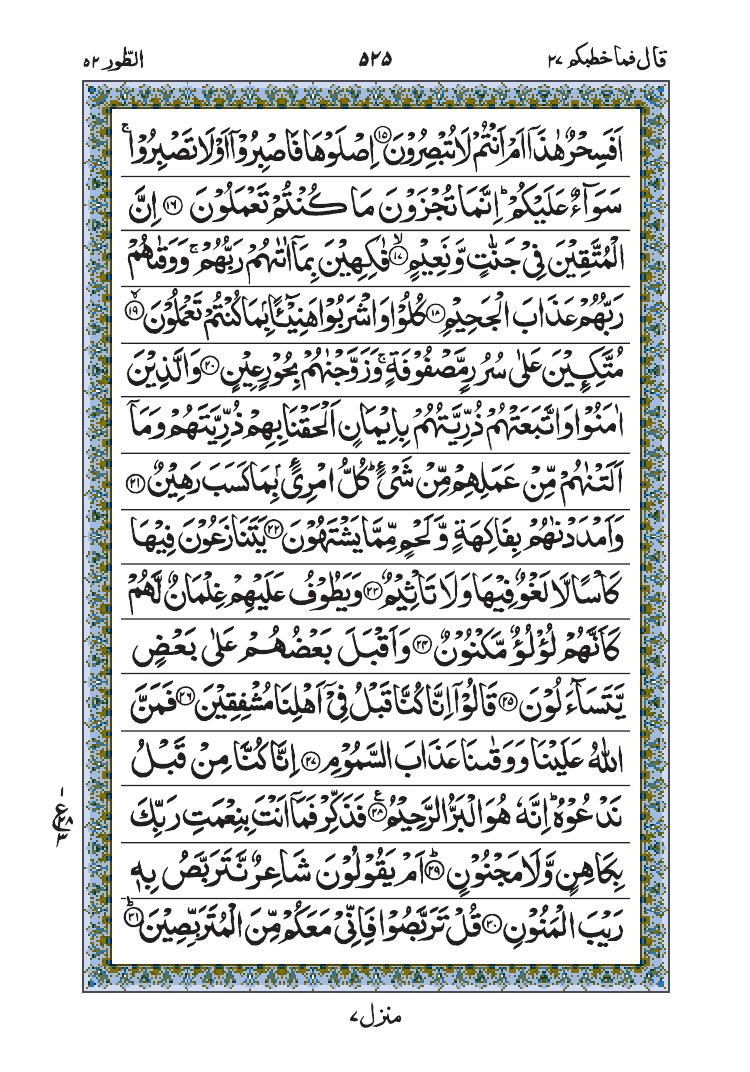 قال فما خطبكم ۲۷ ۵۲۵ الطّور ۵۲
اَفَسِحْرٌ هٰذَاۤ اَمْ اَنْتُمْ لَا تُبْصِرُوْنَ ﴿۱۵﴾ اِصْلَوْهَا فَاصْبِرُوْۤا اَوْ لَا تَصْبِرُوْا ۚ
سَوَآءٌ عَلَيْكُمْ ؕ اِنَّمَا تُجْزَوْنَ مَا كُنْتُمْ تَعْمَلُوْنَ ﴿۱۶﴾ اِنَّ
الْمُتَّقِيْنَ فِيْ جَنّٰتٍ وَّ نَعِيْمٍ ﴿ۙ۱۷﴾ فٰكِهِيْنَ بِمَاۤ اٰتٰىهُمْ رَبُّهُمْ ۚ وَ وَقٰىهُمْ
رَبُّهُمْ عَذَابَ الْجَحِيْمِ ﴿۱۸﴾ كُلُوْا وَ اشْرَبُوْا هَنِيْٓـًٔۢا بِمَا كُنْتُمْ تَعْمَلُوْنَ ﴿ۙ۱۹﴾
مُتَّكِـِٕيْنَ عَلٰى سُرُرٍ مَّصْفُوْفَةٍ ۚ وَ زَوَّجْنٰهُمْ بِحُوْرٍ عِيْنٍ ﴿۲۰﴾ وَ الَّذِيْنَ
اٰمَنُوْا وَ اتَّبَعَتْهُمْ ذُرِّيَّتُهُمْ بِاِيْمَانٍ اَلْحَقْنَا بِهِمْ ذُرِّيَّتَهُمْ وَ مَاۤ
اَلَتْنٰهُمْ مِّنْ عَمَلِهِمْ مِّنْ شَيْءٍ ؕ كُلُّ امْرِئًۢ بِمَا كَسَبَ رَهِيْنٌ ﴿۲۱﴾
وَ اَمْدَدْنٰهُمْ بِفَاكِهَةٍ وَّ لَحْمٍ مِّمَّا يَشْتَهُوْنَ ﴿۲۲﴾ يَتَنَازَعُوْنَ فِيْهَا
كَاْسًا لَّا لَغْوٌ فِيْهَا وَ لَا تَاْثِيْمٌ ﴿۲۳﴾ وَ يَطُوْفُ عَلَيْهِمْ غِلْمَانٌ لَّهُمْ
كَاَنَّهُمْ لُؤْلُؤٌ مَّكْنُوْنٌ ﴿۲۴﴾ وَ اَقْبَلَ بَعْضُهُمْ عَلٰى بَعْضٍ
يَّتَسَآءَلُوْنَ ﴿۲۵﴾ قَالُوْۤا اِنَّا كُنَّا قَبْلُ فِيْۤ اَهْلِنَا مُشْفِقِيْنَ ﴿۲۶﴾ فَمَنَّ
اللّٰهُ عَلَيْنَا وَ وَقٰىنَا عَذَابَ السَّمُوْمِ ﴿۲۷﴾ اِنَّا كُنَّا مِنْ قَبْلُ
نَدْعُوْهُ ؕ اِنَّهٗ هُوَ الْبَرُّ الرَّحِيْمُ ﴿۲۸﴾ فَذَكِّرْ فَمَاۤ اَنْتَ بِنِعْمَتِ رَبِّكَ
بِكَاهِنٍ وَّ لَا مَجْنُوْنٍ ﴿ؕ۲۹﴾ اَمْ يَقُوْلُوْنَ شَاعِرٌ نَّتَرَبَّصُ بِهٖ
رَيْبَ الْمَنُوْنِ ﴿۳۰﴾ قُلْ تَرَبَّصُوْا فَاِنِّيْ مَعَكُمْ مِّنَ الْمُتَرَبِّصِيْنَ ﴿ؕ۳۱﴾
منزل ۷